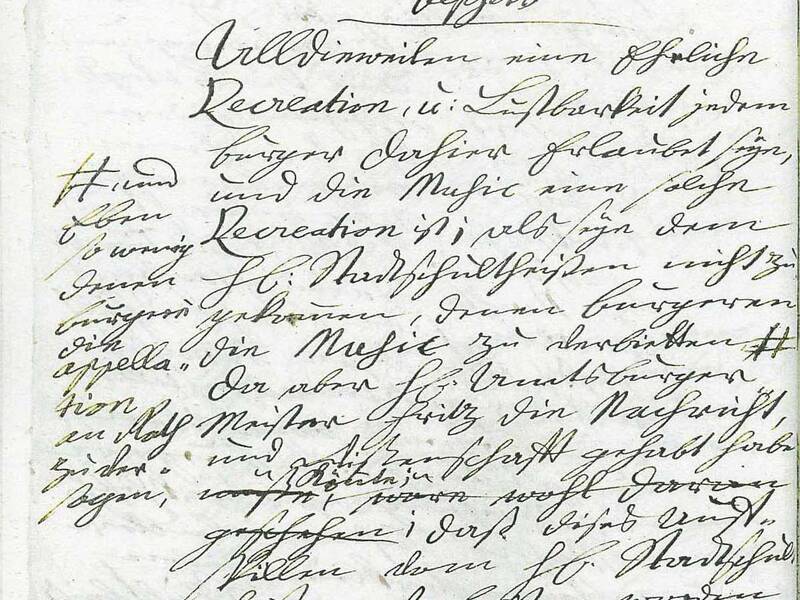 Alldieweilen eine Ehrliche
Recreation, u: Lustbarkeit jedem
burger dahier Erlaubet seye,
und die Music eine solche
Recreation ist; als seye dem
H. Stadtschultheissen nicht zu
gekommen, denen burgeren
die Music zu verbietten #
Da aber H. Amtsburger
Meister Fritz die Nachricht,
und Wissenschafft gehabt habe
wohl daran
geschehen; daß dises
dem H. Stadtschul
werden
# und
Eben
so wenig
denen
burgern
die
appella-
tion
an Rath
zu ver-
sagen,